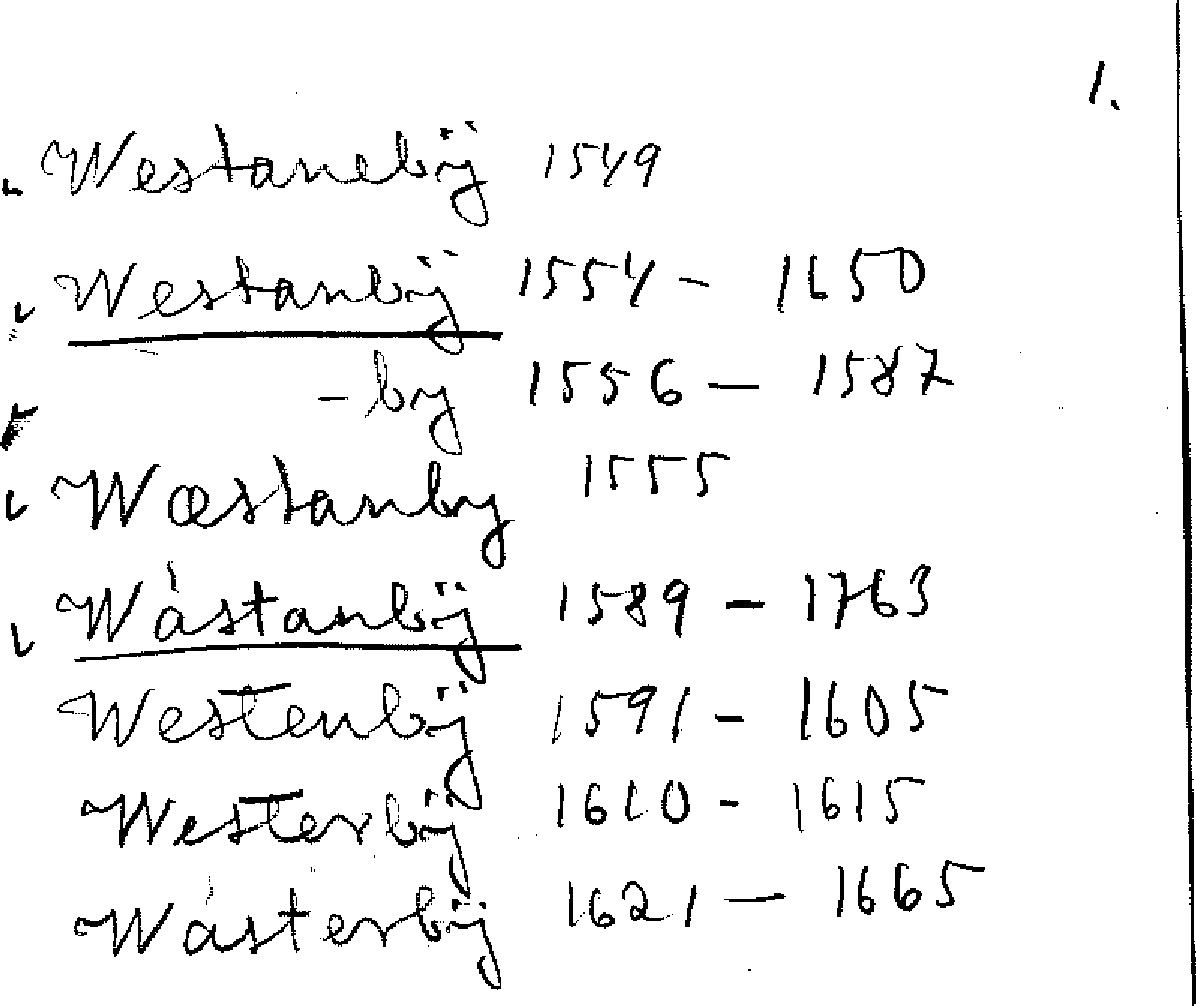 1.
Westanebÿ 1549
Westanbÿ 1554 - 1650
-by 1556 - 1587
Wæstanby 1555
Wástanbÿ 1589 - 1763
Westenbÿ 1591 - 1605
Westerbÿ 1610 - 1615
Wásterbÿ 1621 - 1665